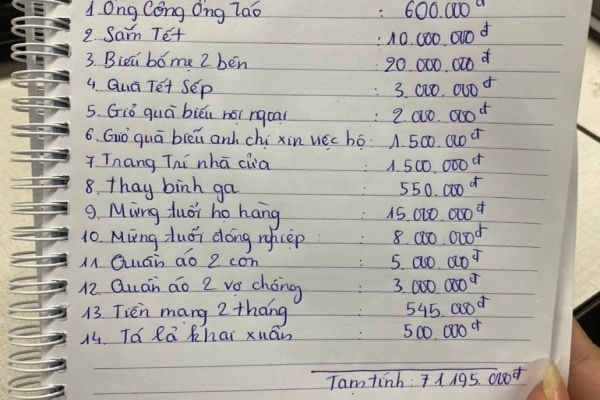 1. Ông Công Ông Táo : 600.000đ
2. Sắm Tết : 10.000.000đ
3. Biếu bố mẹ 2 bên : 20.000.000đ
4. Quà Tết Sếp : 3.000.000đ
5. Giỏ quà biếu nội ngoại : 2.000.000đ
6. Giỏ quà biếu anh chị xin việc hộ : 1.500.000đ
7. Trang Trí nhà cửa : 1.500.000đ
8. Thay bình ga : 550.000đ
9. Mừng tuổi họ hàng : 15.000.000đ
10. Mừng tuổi đồng nghiệp : 8.000.000đ
11. Quần áo 2 con : 5.000.000đ
12. Quần áo 2 vợ chồng : 3.000.000đ
13. Tiền mạng 2 tháng : 545.000đ
14. Tá lả khai xuân : 500.000đ
Tạm tính : 71.195.000đ